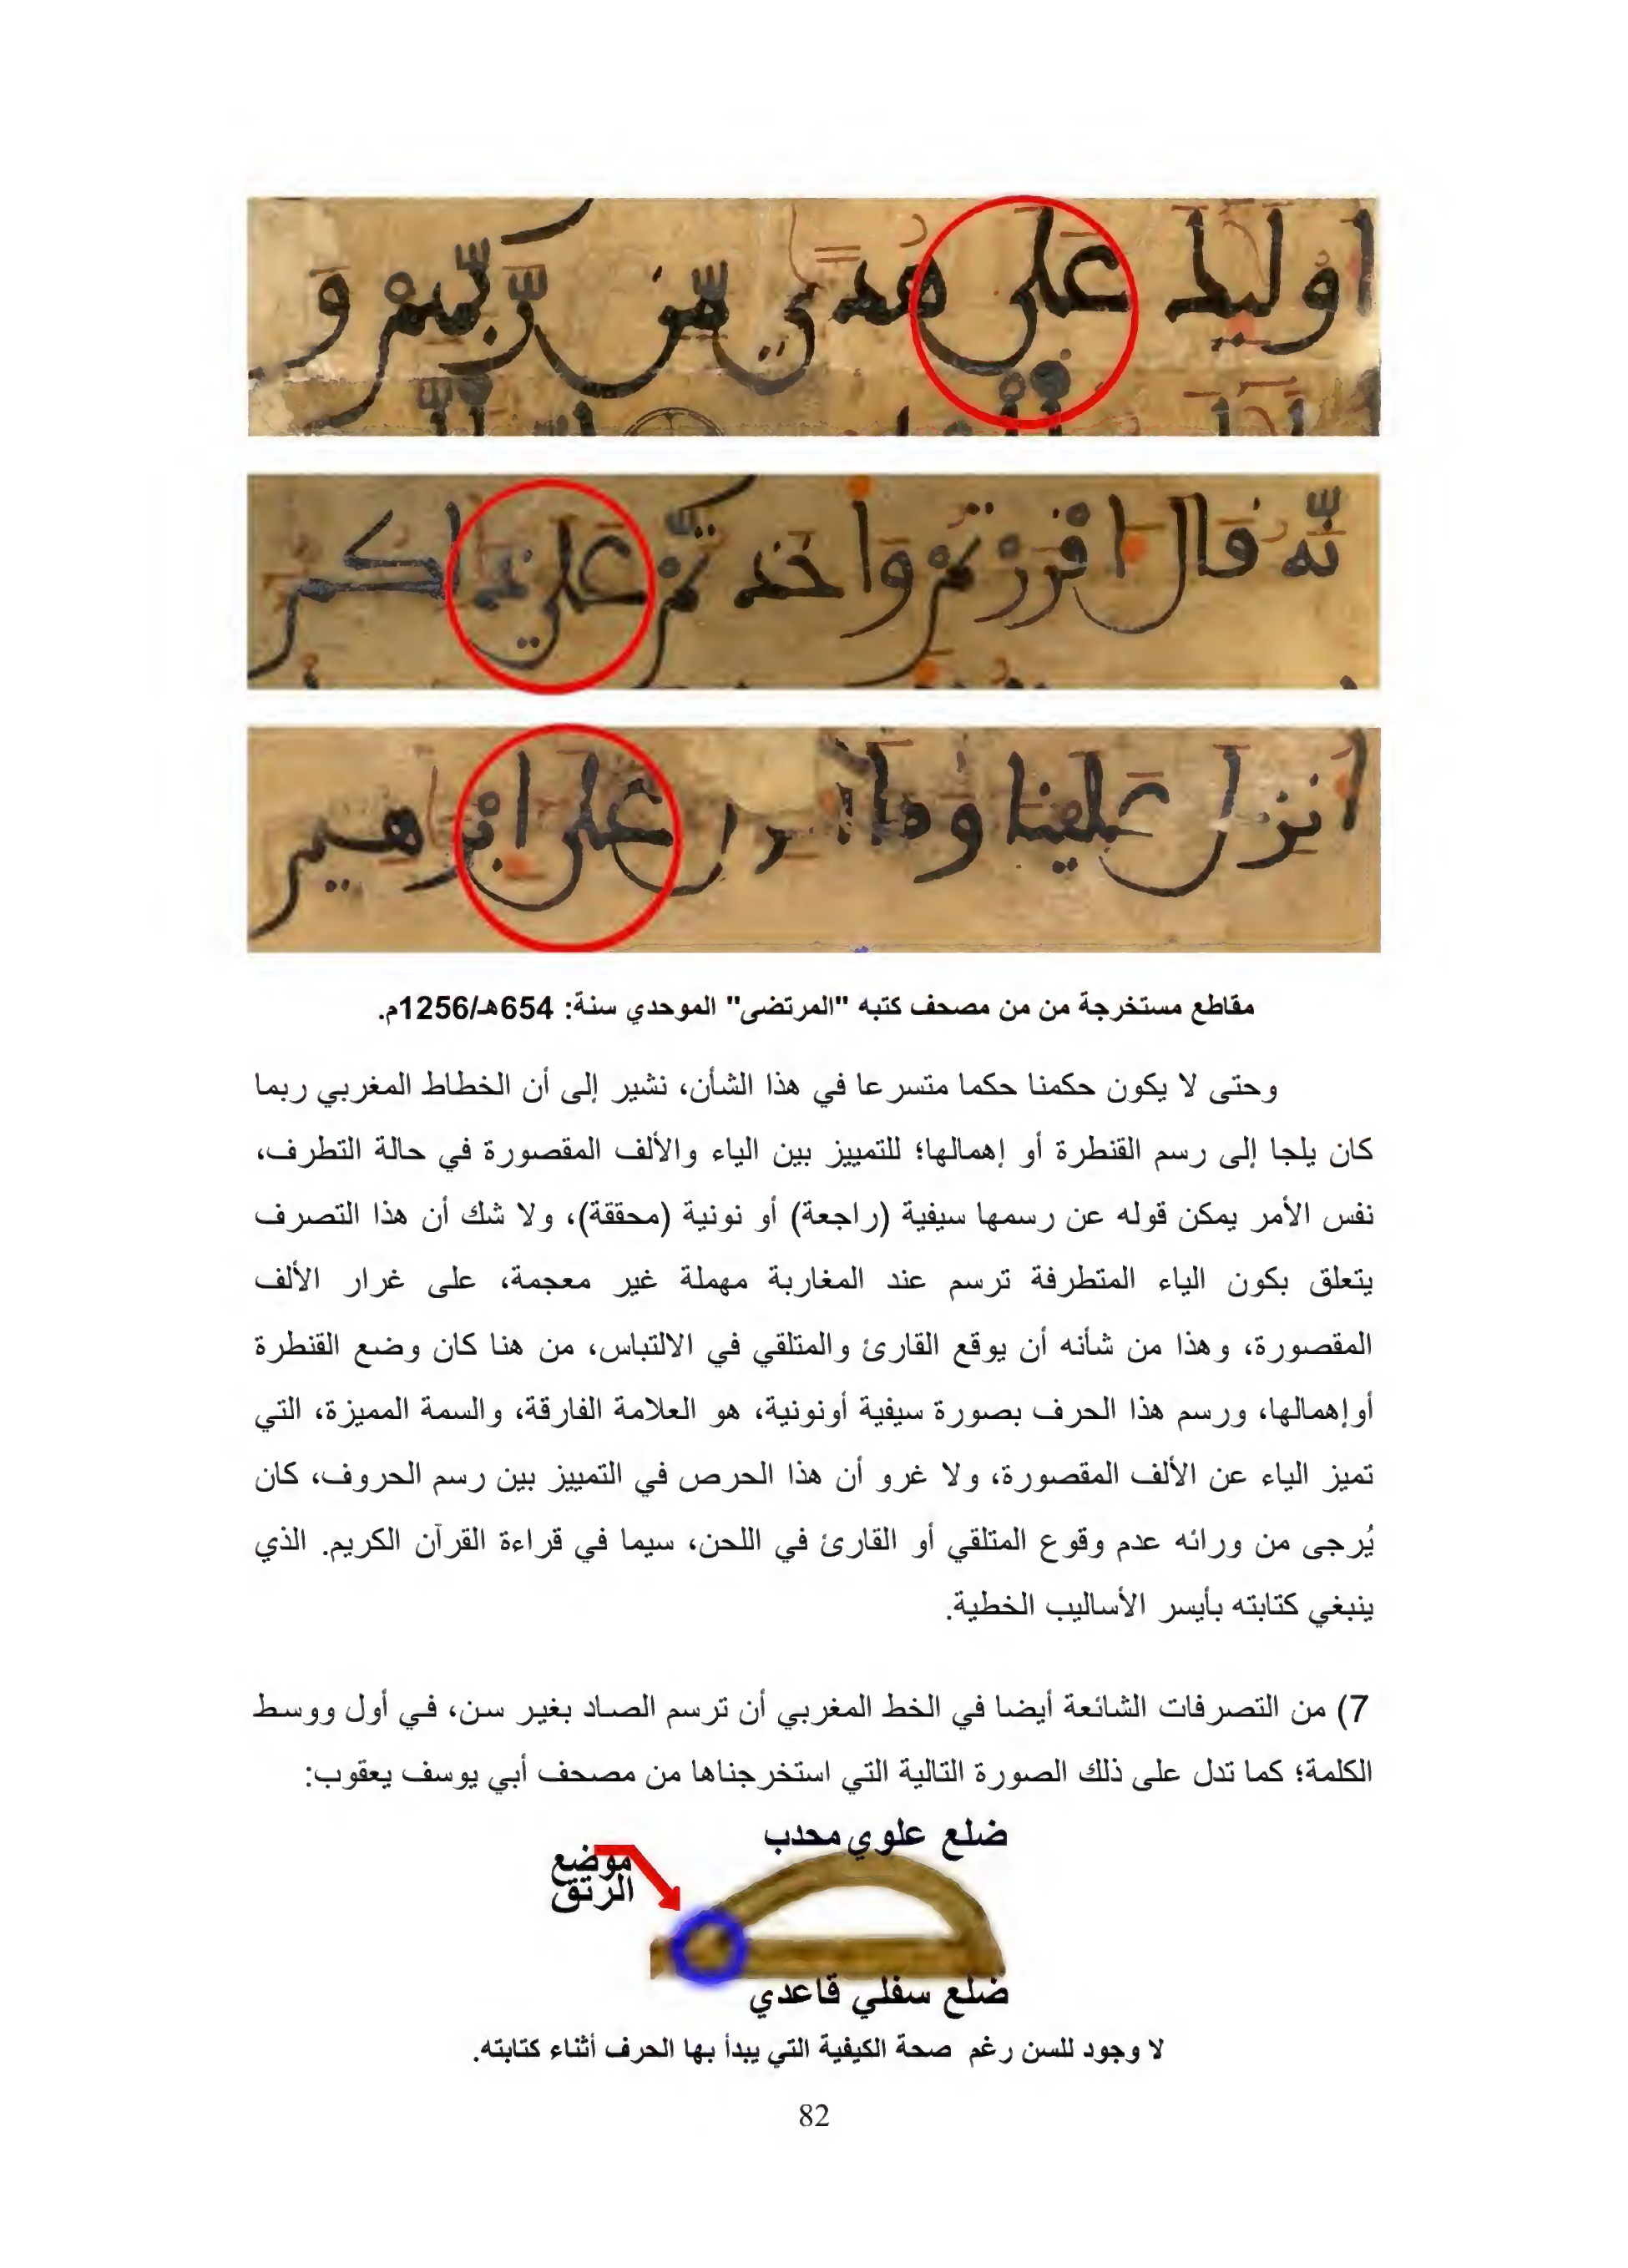 اوليك على هدى من ربهم و
نه قال اقررتم واخذتم على ذلكم
انزل علينا وما انزل على ابراهيم
مقاطع مستخرجة من من مصحف كتبه "المرتضى" الموحدي سنة: 654هـ/1256م.
وحتى لا يكون حكمنا حكما متسرعا في هذا الشأن، نشير إلى أن الخطاط المغربي ربما
كان يلجا إلى رسم القنطرة أو إهمالها؛ للتمييز بين الياء والألف المقصورة في حالة التطرف،
نفس الأمر يمكن قوله عن رسمها سيفية (راجعة) أو نونية (محققة)، ولا شك أن هذا التصرف
يتعلق بكون الياء المتطرفة ترسم عند المغاربة مهملة غير معجمة، على غرار الألف
المقصورة، وهذا من شأنه أن يوقع القارئ والمتلقي في الالتباس، من هنا كان وضع القنطرة
أوإهمالها، ورسم هذا الحرف بصورة سيفية أونونية، هو العلامة الفارقة، والسمة المميزة، التي
تميز الياء عن الألف المقصورة، ولا غرو أن هذا الحرص في التمييز بين رسم الحروف، كان
يُرجى من ورائه عدم وقوع المتلقي أو القارئ في اللحن، سيما في قراءة القرآن الكريم. الذي
ينبغي كتابته بأيسر الأساليب الخطية.
7) من التصرفات الشائعة أيضا في الخط المغربي أن ترسم الصاد بغير سن، في أول ووسط
الكلمة؛ كما تدل على ذلك الصورة التالية التي استخرجناها من مصحف أبي يوسف يعقوب:
ضلع علوي محدب
موضع
الرتق
ضلع سفلي قاعدي
لا وجود للسن رغم صحة الكيفية التي يبدأ بها الحرف أثناء كتابته.
82